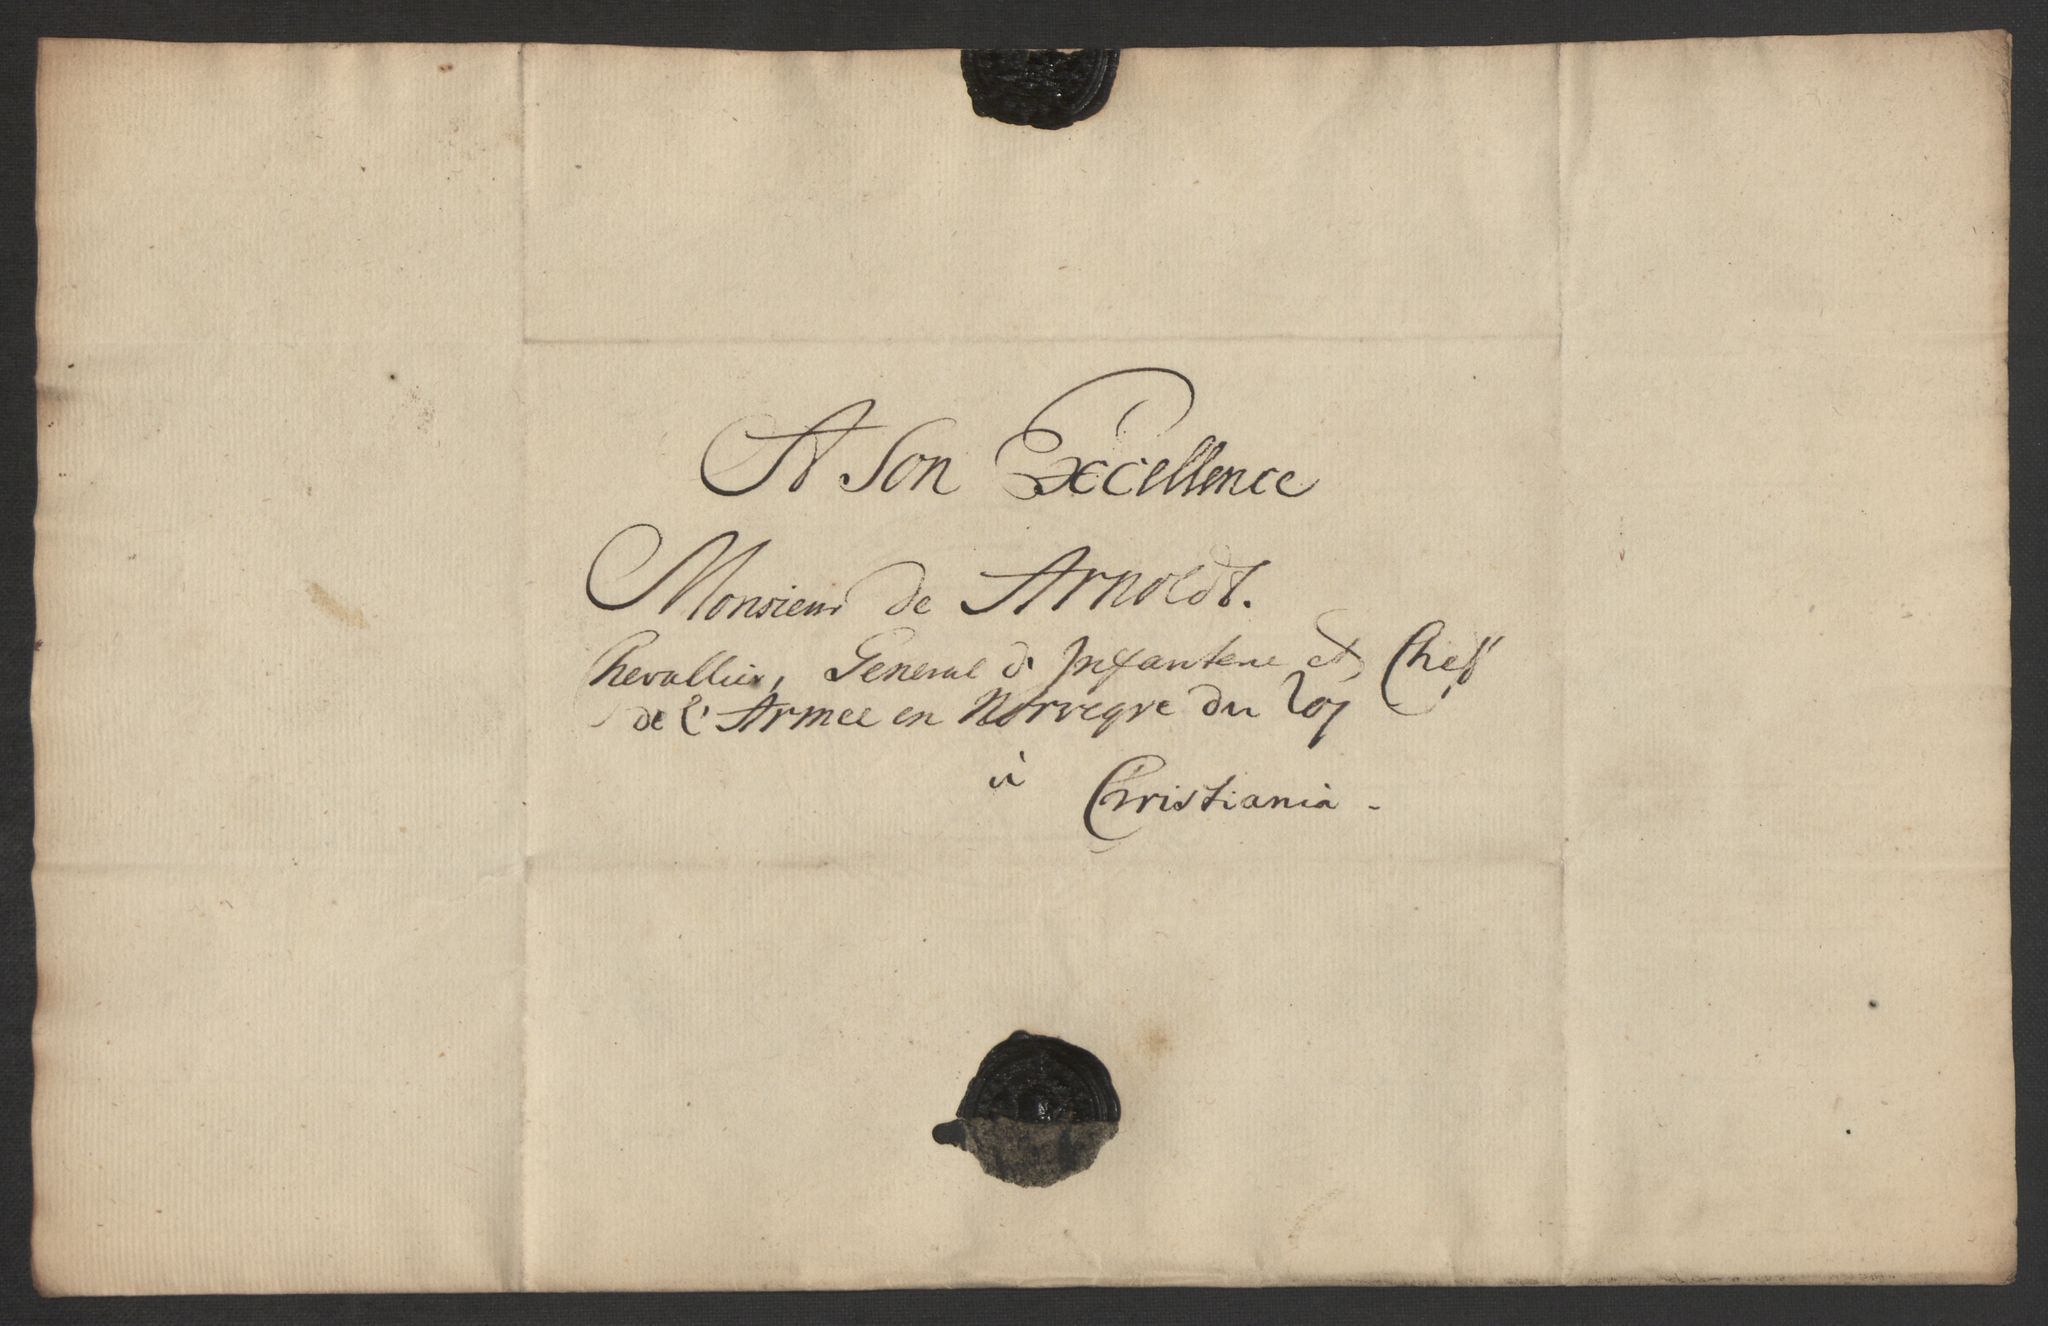 A Son Excellence
Monsieur de Arnoldt.
Chevallier, General d'Infanterie et Chef
de l'Armee en Norvegve du Roy
à
Christiania -